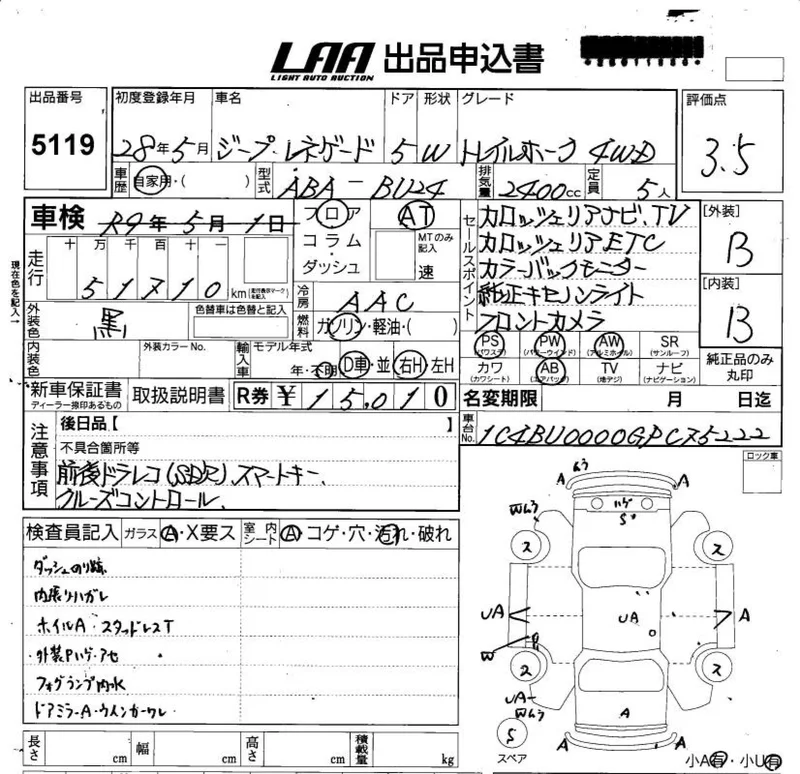 LAA 出品申込書
LIGHT AUTO AUCTION
出品番号 5119
初度登録年月 28年5月
車名 ジープ レネゲード
ドア 5 形状 W
グレード トレイルホーク 4WD
評価点 3.5
車歴 自家用・( )
型式 ABA-BU24
排気量 2400cc
定員 5人
車検 R9年5月1日
フロア・コラム・ダッシュ
AT
MTのみ記入 速
セールスポイント
カロッツェリアナビ、TV
カロッツェリアETC
カラーバックモニター
純正キセノンライト
フロントカメラ
[外装] B
[内装] B
純正品のみ丸印
現在色を記入→
走行 十万千百十一
51710 km (走行表示マークを記入)
冷房 AAC
外装色 黒
色替車は色替と記入
燃料 ガソリン・軽油・( )
内装色
外装カラーNo.
輸入車 モデル年式 年・不明 D車・並 右H 左H
PS (パワステ) PW (パワーウインド) AW (アルミホイル) SR (サンルーフ)
カワ (カワシート) AB (エアバッグ) TV (地デジ) ナビ (ナビゲーション)
新車保証書 ディーラー捺印あるもの
取扱説明書
R券 ¥ 15,010
名変期限 月 日迄
車台No. 1C4BU0000GPC75222
注意事項
後日品【 】
不具合箇所等
前後ドラレコ(SD欠)、スマートキー、
クルーズコントロール、
ロック車
検査員記入 ガラス A・X要ス 室内シート A・コゲ・穴・汚れ・破れ
ダッシュのり跡
内張りハガレ
ホイルA・スタッドレスT
・外装Pハゲ・アセ
フォグランプ内水
ドアミラーA・ウインカーワレ
A ムラ A
Wムラ
ハゲ
S
ス ス
UA
UA
A
W
P
ス ス
UA-
Wムラ
A
A A
S
スペア
長さ cm 幅 cm 高さ cm 積載量 kg
小A有・小U有